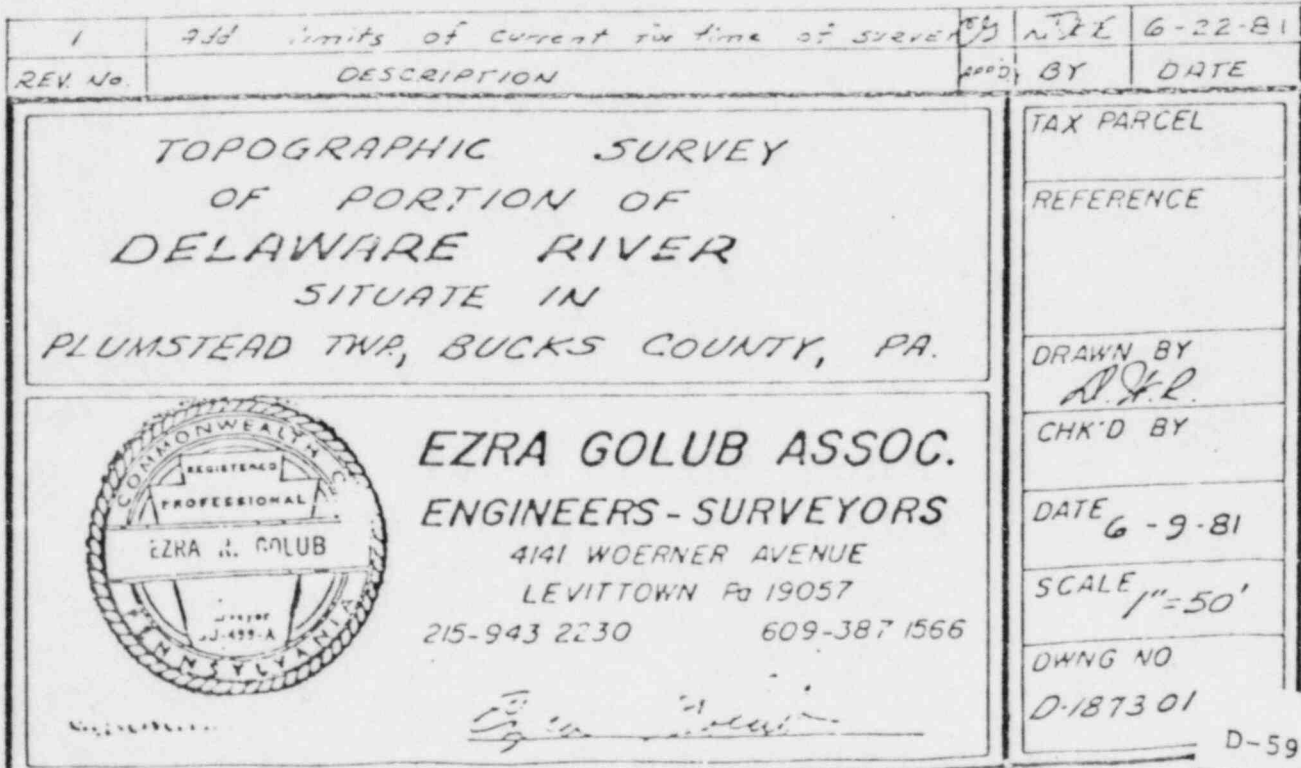 1 Add limits of current time of survey 6-22-81
REV. No. DESCRIPTION APP'D BY DATE
TOPOGRAPHIC SURVEY
OF PORTION OF
DELAWARE RIVER
SITUATE IN
PLUMSTEAD TWP., BUCKS COUNTY, PA.
COMMONWEALTH OF
REGISTERED
PROFESSIONAL
EZRA GOLUB
PENNSYLVANIA
EZRA GOLUB ASSOC.
ENGINEERS - SURVEYORS
4141 WOERNER AVENUE
LEVITTOWN Pa 19057
215-943 2230 609-387 1566
TAX PARCEL
REFERENCE
DRAWN BY
CHK'D BY
DATE 6-9-81
SCALE 1"=50'
DWNG NO
D-1873 01
D-59